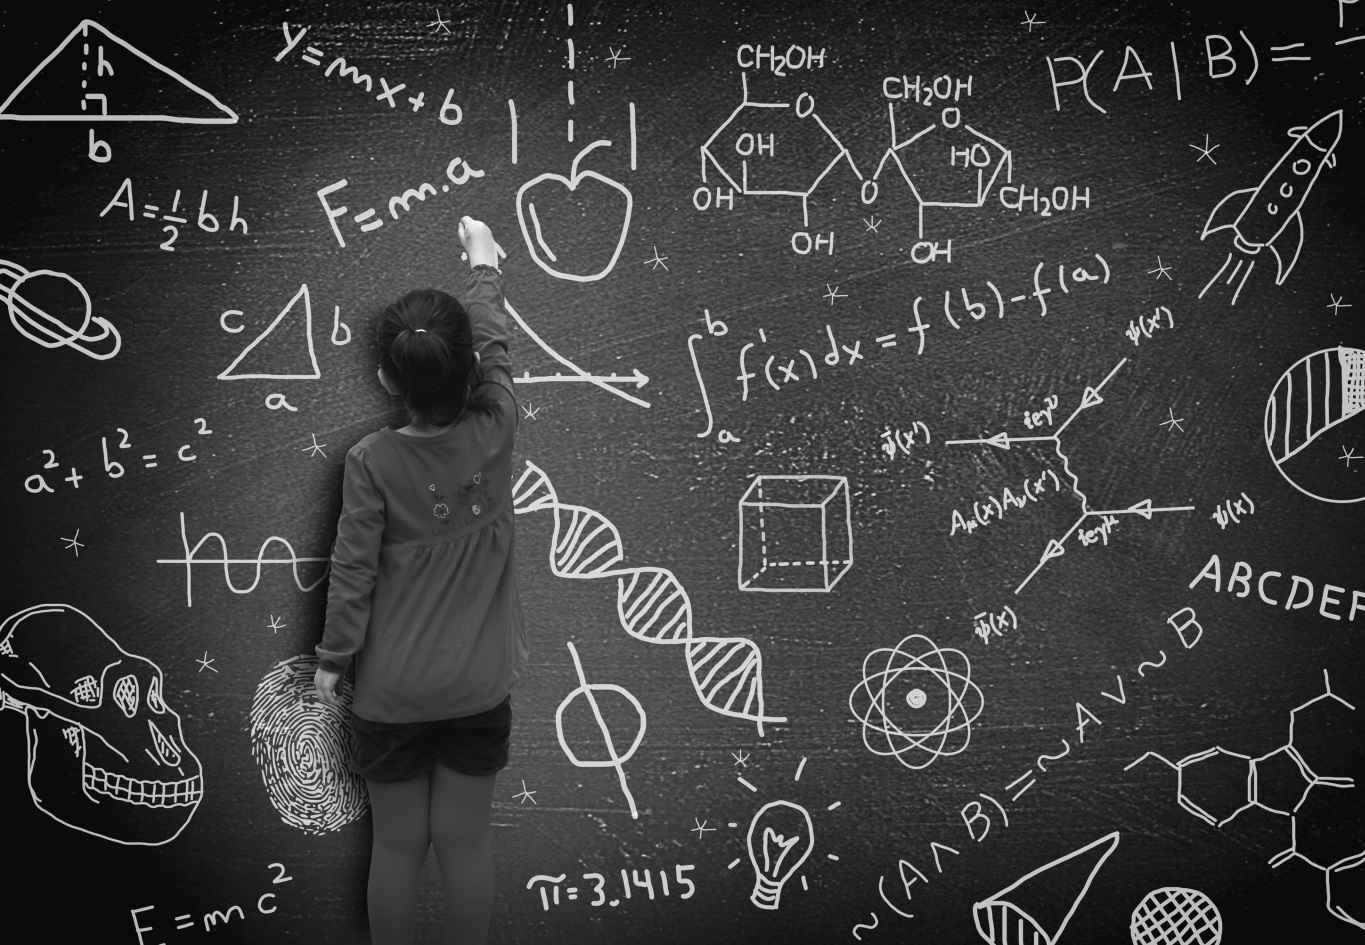 h
b
y=mx+b
A=½bh
F=m.a
CH₂OH
O
OH
OH
OH
O
CH₂OH
O
HO
CH₂OH
OH
P(A|B)=
c
b
a
a²+b²=c²
∫ₐᵇ f'(x)dx=f(b)-f(a)
ψ(x')
ψ̄(x')
ieγᵛ
Aμ(x)Aν(x')
ψ(x)
ieγᵘ
ψ̄(x)
ABCDEF
~(A∧B)=~A∨~B
π=3.1415
E=mc²